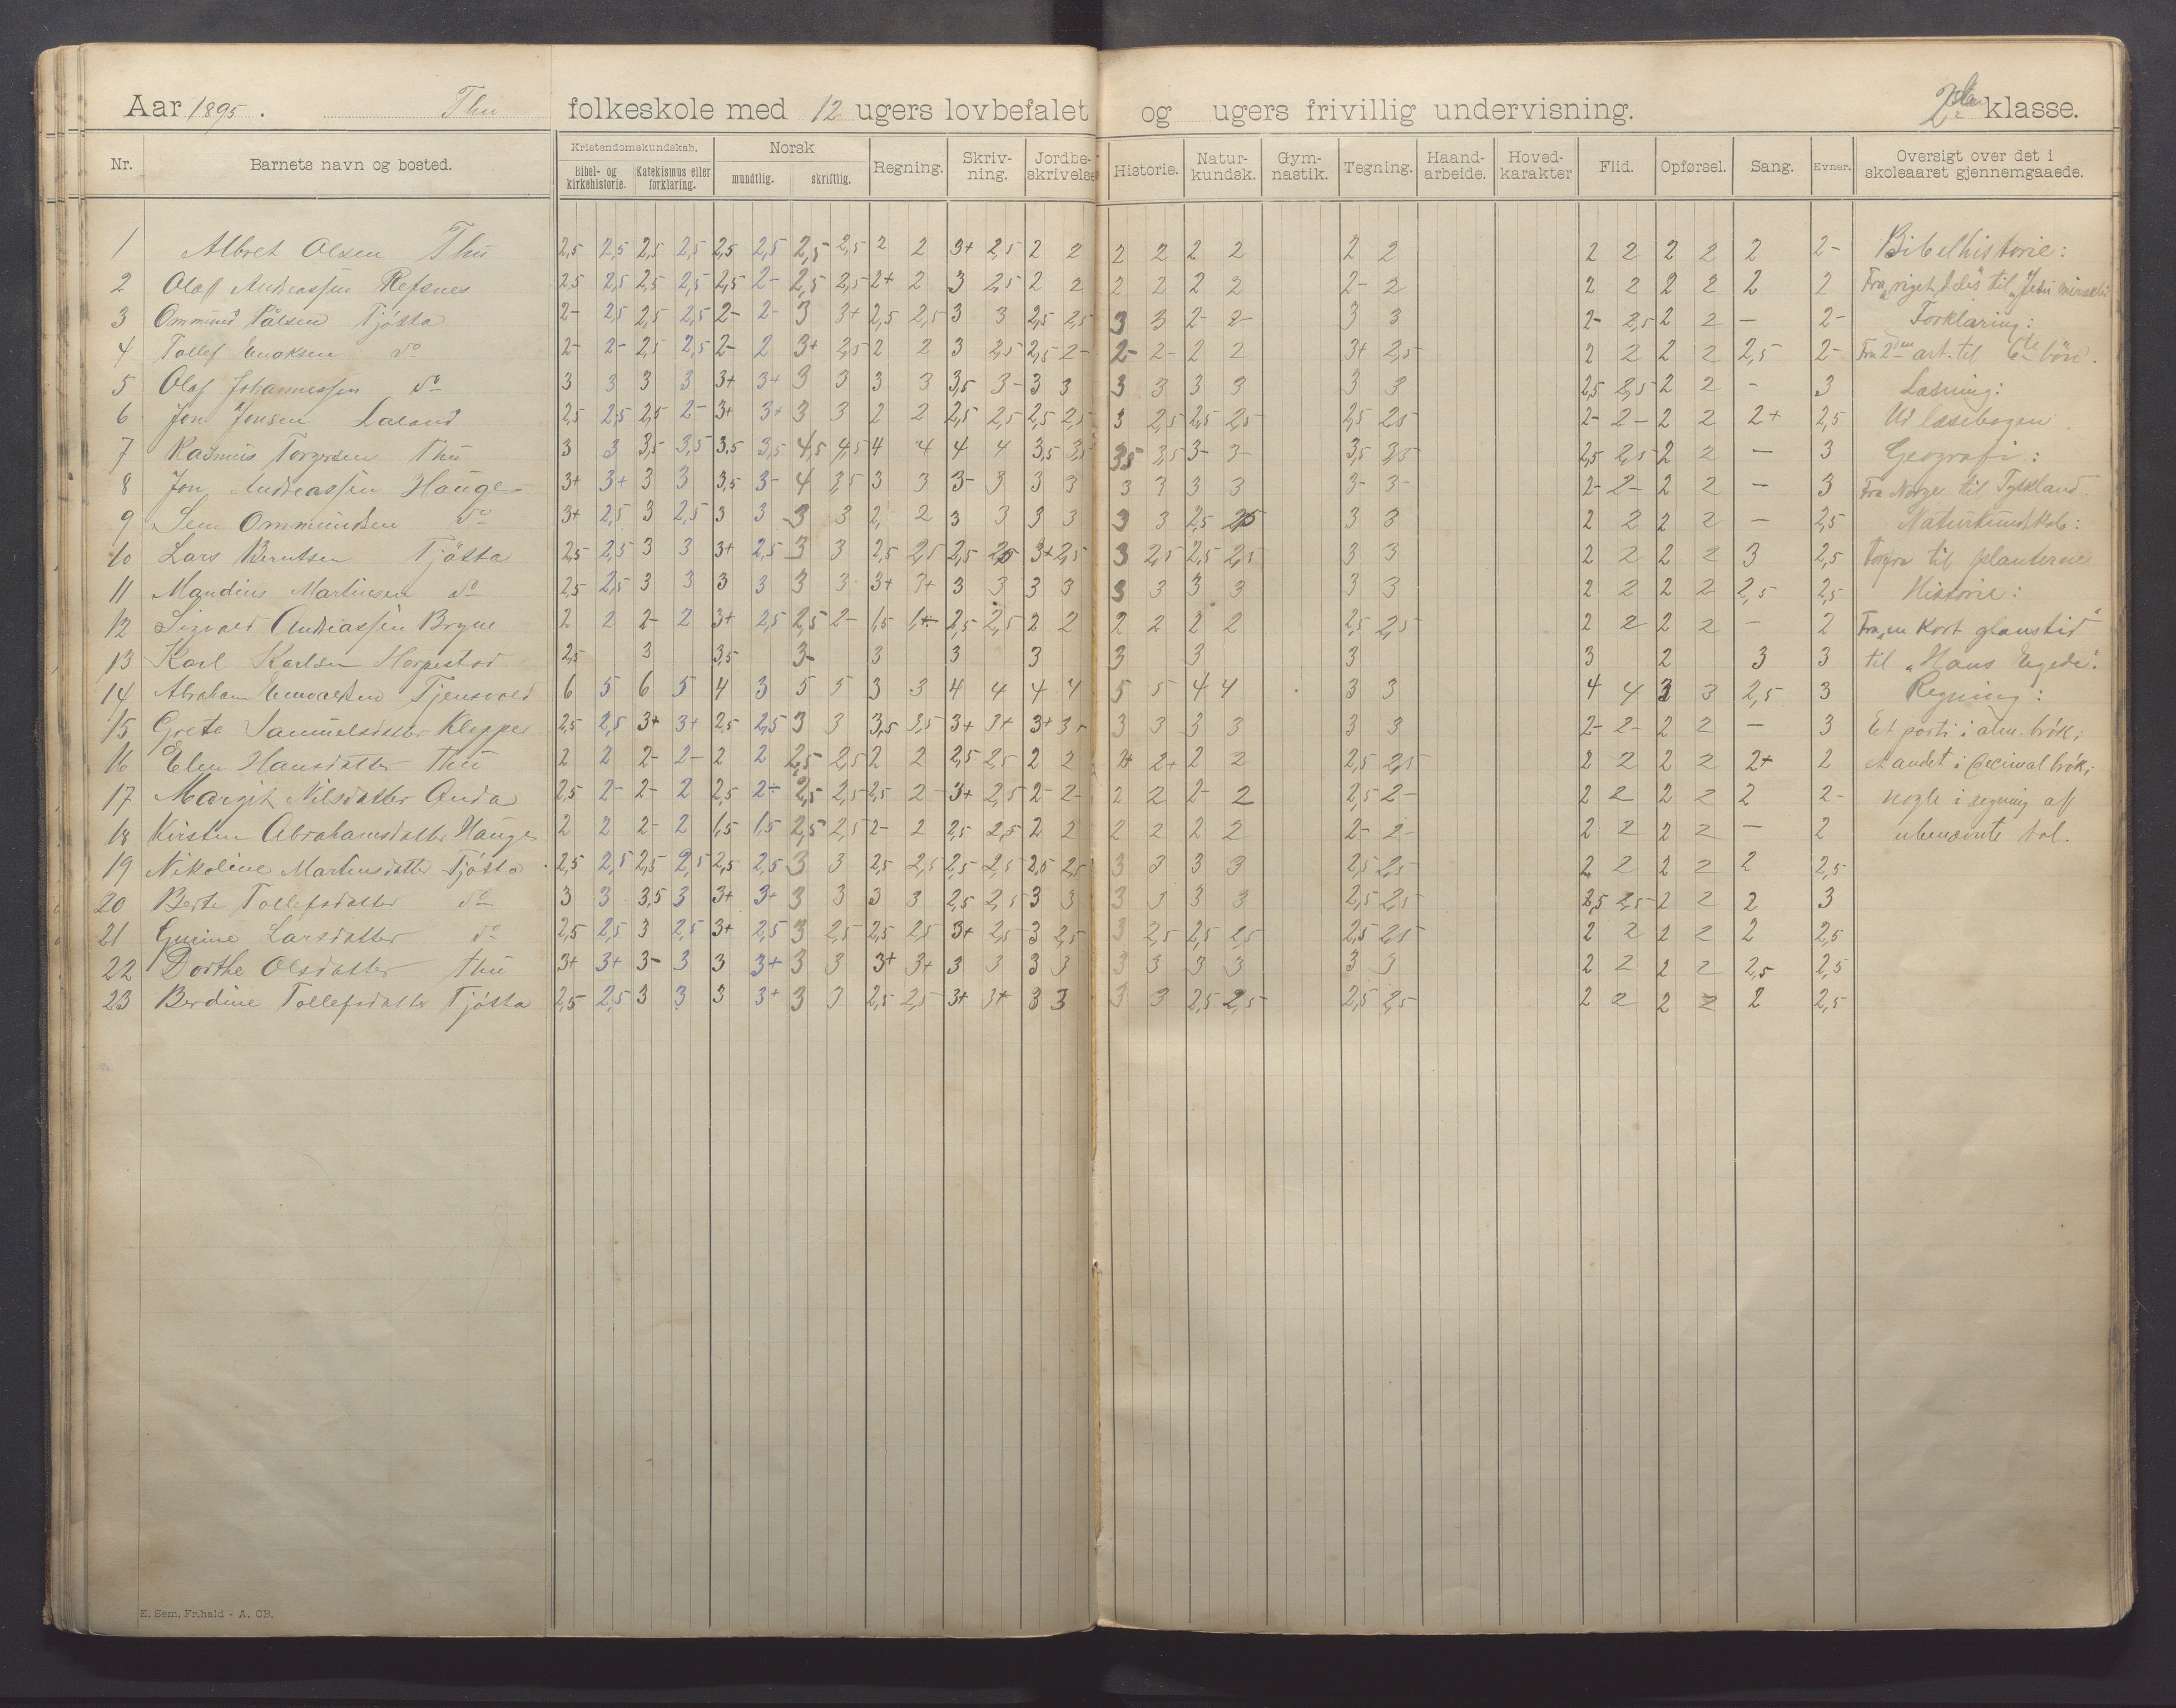 Aar 1895. Thu folkeskole med 12 ugers lovbefalet og ugers frivillig undervisning. 2den klasse.
Nr. Barnets navn og bosted. Kristendomskundskab. Bibel- og kirkehistorie. Katekismus eller forklaring. Norsk mundtlig. skriftlig. Regning. Skriv-ning. Jordbe-skrivelse Historie. Natur-kundsk. Gym-nastik. Tegning. Haand-arbeide. Hoved-karakter Flid. Opførsel. Sang. Evner. Oversigt over det i skoleaaret gjennemgaaede.
1 Albret Olsen Thu 2,5 2,5 2,5 2,5 2,5 2,5 2,5 2,5 2 2 3+ 2,5 2 2 2 2 2 2 2 2 2 2 2 2 2 2- Bibelhistorie:
2 Olaf Andreassen Refsnes 2,5 2,5 2,5 2,5 2,5 2- 2,5 2,5 2+ 2 3 2,5 2 2 2 2 2 2 2- 2 2 2 2 2 2 2 Fra „riget deles" til „Jesu
3 Ommund Pålsen Tjøtta 2- 2,5 2,5 2,5 2- 2- 3 3+ 2,5 2,5 3 3 2,5 2,5 3 3 2- 2- 3 3 2- 2,5 2 2 — 2- Forklaring:
4 Tollef Enoksen do 2- 2- 2,5 2,5 2- 2 3+ 2,5 2 2 3 2,5 2,5 2- 2- 2- 2 2 3+ 2,5 2 2 2 2 2,5 2- Fra 2den art. til 6te bøn.
5 Olaf Johannessen do 3 3 3 3 3+ 3+ 3 3 3 3 3,5 3- 3 3 3 3 3 3 3 3 2,5 2,5 2 2 - 3 Læsning:
6 Jon Jonsen Laland 2,5 2,5 2,5 2- 3+ 3+ 3 3 2 2 2,5 2,5 2,5 2,5 3 2,5 2,5 2,5 2,5 2,5 2- 2- 2 2 2+ 2,5 Ud læsebogen
7 Rasmus Torgersen Thu 3 3 3,5 3,5 3,5 3,5 4,5 4,5 4 4 4 4 3,5 3,5 3,5 3,5 3- 3- 3,5 3,5 2,5 2,5 2 2 — 3 Geografi:
8 Jon Andreassen Hauge 3+ 3+ 3 3 3,5 3- 4 3,5 3 3 3- 3 3 3 3 3 3 3 3- 3- 2- 2- 2 2 — 3 Fra Norge til Tyskland.
9 Sem Ommundsen do 3+ 2,5 3 2,5 3 3 3 3 2, 2 3 3 3 3 3 3 2,5 2,5 3 3 2 2 2 2 — 2,5 Naturkundskab:
10 Lars Berntsen Tjøtta 2,5 2,5 3 3 3+ 2,5 3 3 2,5 2,5 2,5 2,5 3+ 2,5 3 2,5 2,5 2,5 3 3 2 2 2 2 3 2,5 Forfra til planterne
11 Mandius Martinsen do 2,5 2,5 3 3 3 3 3 3 3+ 3+ 3 3 3 3 3 3 3 3 3 3 2 2 2 2 2,5 2,5 Historie:
12 Sigvald Andreassen Bryne 2 2 2- 2 3+ 2,5 2,5 2- 1,5 1,+ 2,5 2,5 2 2 2 2 2 2 2,5 2,5 2 2 2 2 — 2 Fra „en kort glanstid"
13 Karl Karlsen Horpestad 2,5 3 3,5 3- 3 3 3 3 3 3 3 2 3 3 til „Hans Egede".
14 Abraham Tjensvold 6 5 6 5 4 3 5 5 3 3 4 4 4 4 5 5 4 4 3 3 4 4 3 3 2,5 3 Regning:
15 Grete Samuelsdatter Kleppe 2,5 2,5 3+ 3+ 2,5 2,5 3 3 3,5 3,5 3+ 3+ 3+ 3+ 3 3 3 3 3 3 2- 2- 2 2 — 3 Et parti i alm. brøk;
16 Elen Hansdatter Thu 2 2 2- 2- 2 2 2,5 2,5 2 2 2,5 2,5 2 2 2+ 2+ 2 2 2,5 2,5 2 2 2 2 2+ 2 et andet i decimal brøk;
17 Margit Nilsdatter Anda 2,5 2- 2- 2 2,5 2- 2,5 2,5 2,5 2- 3+ 2,5 2- 2- 2 2 2- 2 2,5 2- 2 2 2 2 2 2- nogle i regning af
18 Kirsten Abrahamsdatter Hauge 2 2 2- 2 1,5 1,5 2,5 2,5 2- 2 2,5 2,5 2 2 2 2 2 2 2- 2- 2 2 2 2 — 2 ubenævnte tal.
19 Nikoline Martinsdatter Tjøtta 2,5 2,5 2,5 2,5 2,5 2,5 3 3 2,5 2,5 2,5 2,5 2,5 2,5 3 3 3 3 2,5 2,5 2 2 2 2 2 2,5
20 Berte Tollefsdatter do 3 3 3,5 3 3+ 3+ 3 3 3 3 2,5 2,5 3 3 3 3 3 3 2,5 2,5 2,5 2,5 2 2 2 3
21 Gurine Larsdatter do 2,5 2,5 3 2,5 3+ 2,5 3 2,5 2,5 2,5 3+ 2,5 3 2,5 3 2,5 2,5 2,5 2,5 2,5 2 2 2 2 2 2,5
22 Dorthe Olsdatter Thu 3+ 3+ 3- 3 3 3+ 3 3 3+ 3+ 3 3 3 3 3 3 3 3 3 3 2 2 2 2 2,5 2,5
23 Berdine Tollefsdatter Tjøtta 2,5 2,5 3 3 3 3+ 3 3 2,5 2,5 3+ 3+ 3 3 3 3 2,5 2,5 2,5 2,5 2 2 2 2 2 2,5
E. Sem. Fr.hald - A. CB.